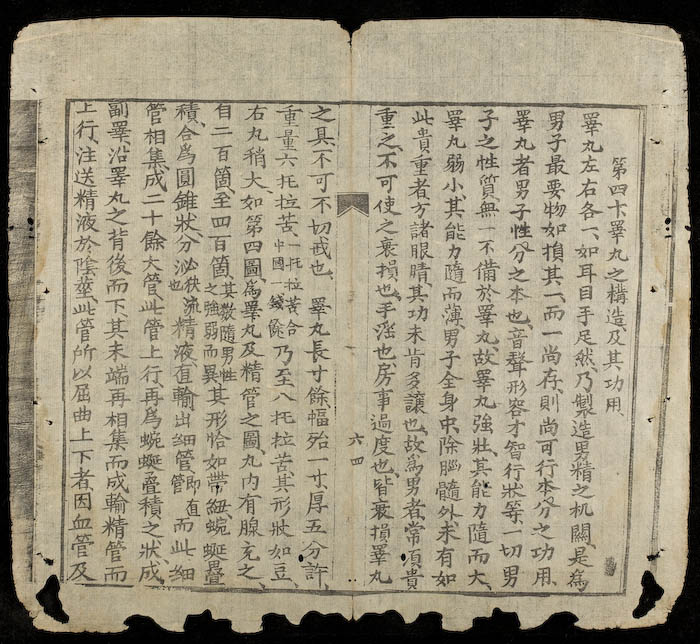 第四十睪丸之構造、及其功用、
睪丸左右各一、如耳目手足然、乃製造男精之机關、是為
男子最要物、如損其一、而一尚存、則尚可行本分之功用、
睪丸者男子性分之本也、音聲形容才智行狀等、一切男
子之性質、無一不備於睪丸、故睪丸強壯、其能力隨而大、
睪丸弱小、其能力隨而薄、男子全身中、除腦髓外、未有如
此貴重者、方諸眼睛、其功未肯多讓也、故為男者、常須貴
重之、不可使之衰損也、手淫也、房事過度也、皆衰損睪丸
六四
之具、不可不切戒也、 睪丸長寸餘、幅殆一寸、厚五分許、
重量六托拉苦、一托拉苦合中國一錢餘乃至八托拉苦、其形狀如豆、
右丸稍大、如第四圖、為睪丸及精管之圖、丸內有腺充之、
自二百箇、至四百箇、其數隨男性之強弱而異、其形恰如帶紐、蜿蜒疊
積、合為圓錐狀、分泌秩流也精液、直輸出細管、即直管而此細
管相集成二十餘大管、此管上行、再為蜿蜒疊積之狀、成
副睪、沿睪丸之背後而下、其末端再相集而成輸精管而
上行、注送精液於陰莖、此管所以屈曲上下者、因血管及